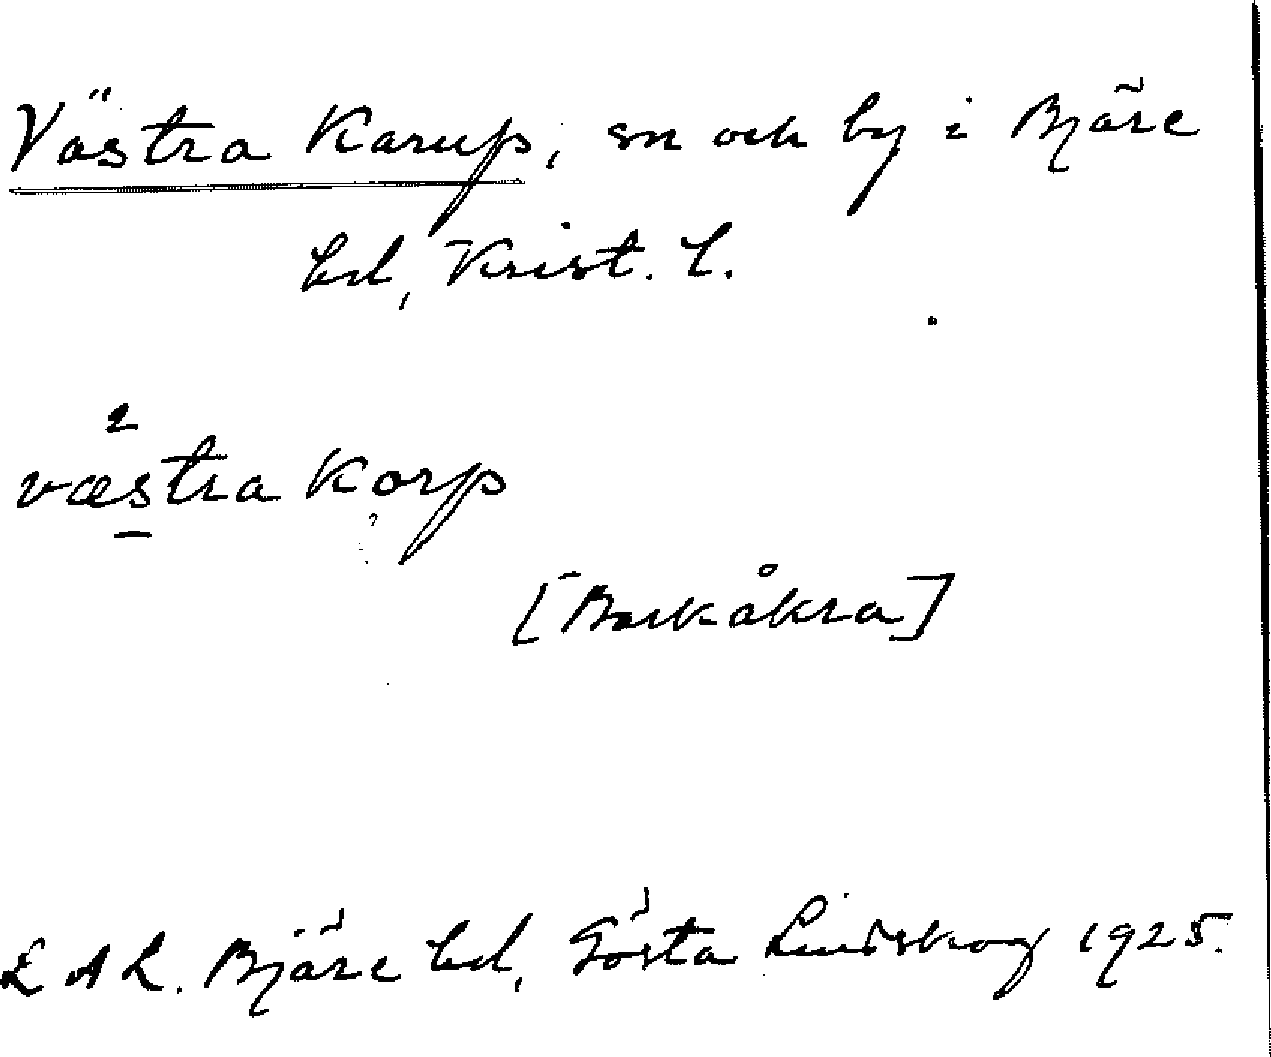 Västra Karup, sn och by i Bjäre
hd, Krist. l.
2
væstra korp
[Barkåkra]
LAL. Bjäre hd, Gösta Lindskog 1925.